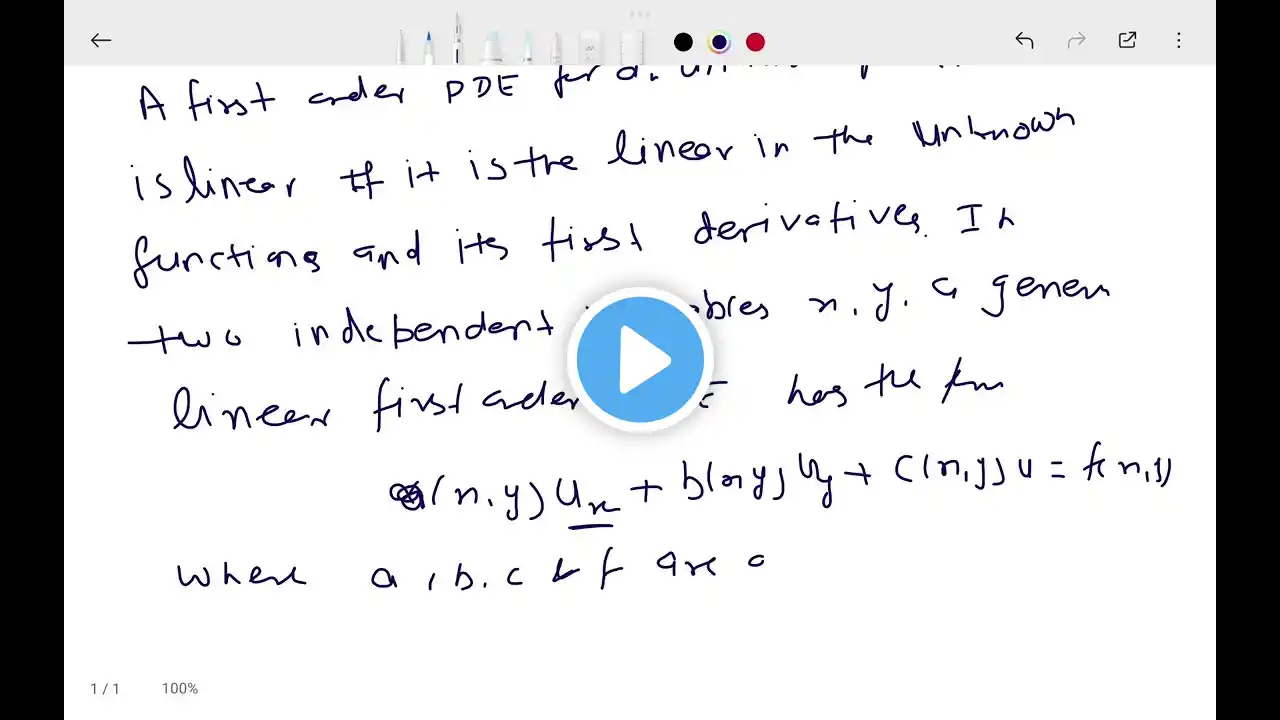 A first order PDE for a
is linear if it is the linear in the unknown
functions and its first derivatives. In
two independent x, y. a gener
linear first order has the form
a(x, y) Ux + b(x, y) Uy + C(x, y) u = f(x, y)
where a, b, c & f are a
1 / 1 100%